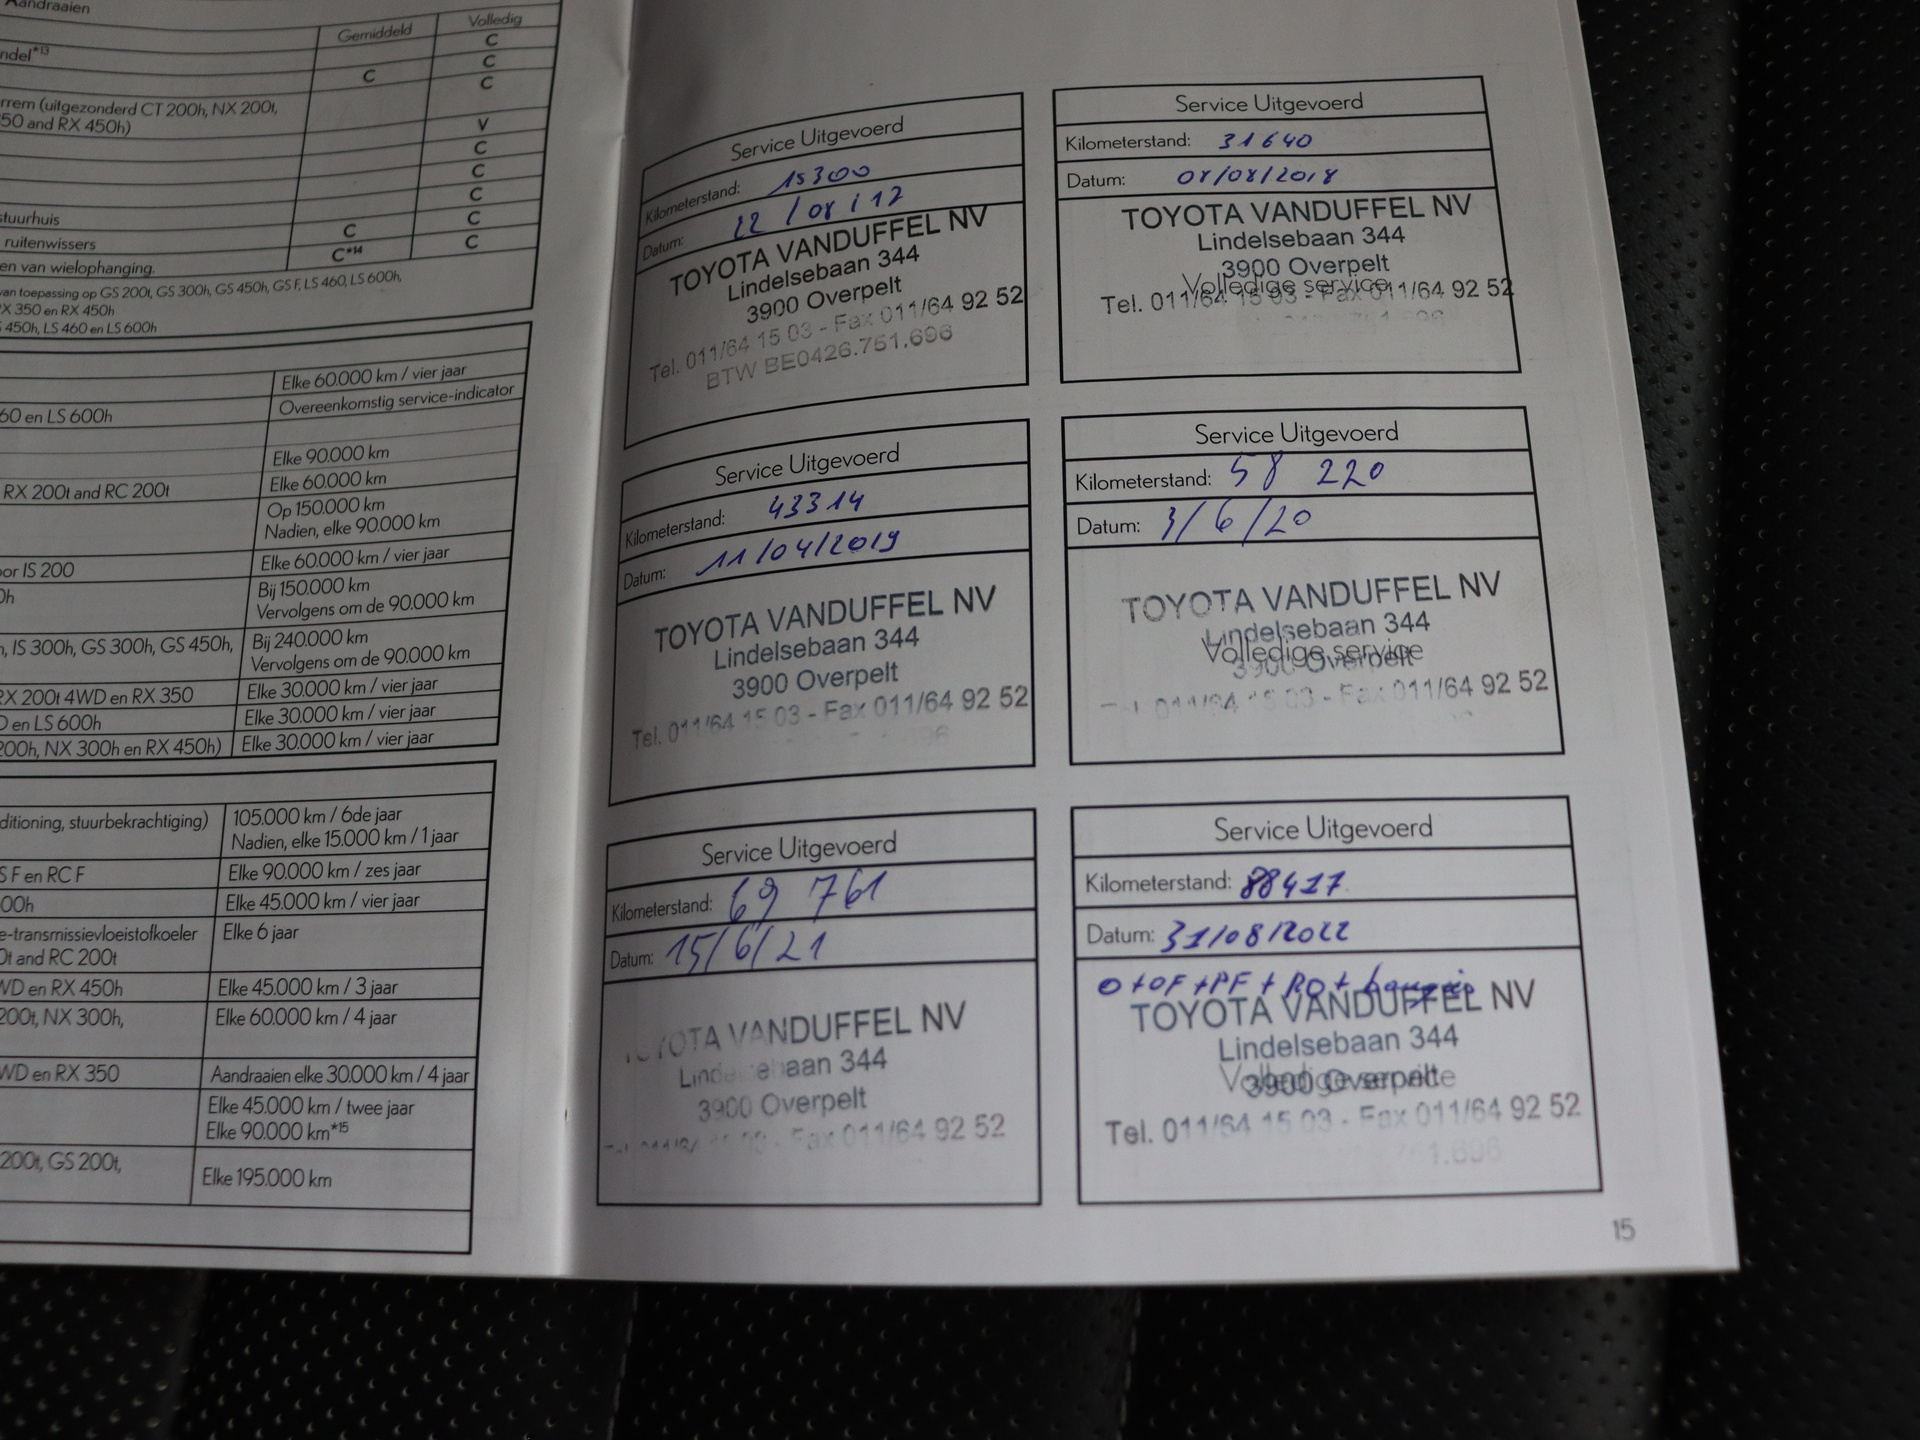 Aandraaien
Gemiddeld Volledig
C
ndel*13 C
C C
rrem (uitgezonderd CT 200h, NX 200t,
50 and RX 450h) V
C
C
C
stuurhuis C C
ruitenwissers C*14 C
en van wielophanging.
van toepassing op GS 200t, GS 300h, GS 450h, GS F, LS 460, LS 600h,
X 350 en RX 450h
450h, LS 460 en LS 600h
Elke 60.000 km / vier jaar
60 en LS 600h Overeenkomstig service-indicator
Elke 90.000 km
RX 200t and RC 200t Elke 60.000 km
Op 150.000 km
Nadien, elke 90.000 km
oor IS 200 Elke 60.000 km / vier jaar
0h Bij 150.000 km
Vervolgens om de 90.000 km
, IS 300h, GS 300h, GS 450h, Bij 240.000 km
Vervolgens om de 90.000 km
RX 200t 4WD en RX 350 Elke 30.000 km / vier jaar
D en LS 600h Elke 30.000 km / vier jaar
200h, NX 300h en RX 450h) Elke 30.000 km / vier jaar
ditioning, stuurbekrachtiging) 105.000 km / 6de jaar
Nadien, elke 15.000 km / 1 jaar
S F en RC F Elke 90.000 km / zes jaar
00h Elke 45.000 km / vier jaar
e-transmissievloeistofkoeler Elke 6 jaar
0t and RC 200t
WD en RX 450h Elke 45.000 km / 3 jaar
200t, NX 300h, Elke 60.000 km / 4 jaar
WD en RX 350 Aandraaien elke 30.000 km / 4 jaar
Elke 45.000 km / twee jaar
Elke 90.000 km*15
200t, GS 200t, Elke 195.000 km
Service Uitgevoerd
Kilometerstand: 15300
Datum: 22/08/12
TOYOTA VANDUFFEL NV
Lindelsebaan 344
3900 Overpelt
Tel. 011/64 15 03 - Fax 011/64 92 52
BTW BE0426.751.696
Service Uitgevoerd
Kilometerstand: 31640
Datum: 08/08/2018
TOYOTA VANDUFFEL NV
Lindelsebaan 344
3900 Overpelt
Volledige service
Tel. 011/64 15 03 - Fax 011/64 92 52
Service Uitgevoerd
Kilometerstand: 43314
Datum: 11/04/2019
TOYOTA VANDUFFEL NV
Lindelsebaan 344
3900 Overpelt
Tel. 011/64 15 03 - Fax 011/64 92 52
Service Uitgevoerd
Kilometerstand: 58 220
Datum: 3/6/20
TOYOTA VANDUFFEL NV
Lindelsebaan 344
Volledige service
3900 Overpelt
Tel. 011/64 15 03 - Fax 011/64 92 52
Service Uitgevoerd
Kilometerstand: 69 761
Datum: 15/6/21
TOYOTA VANDUFFEL NV
Lindelsebaan 344
3900 Overpelt
Fax 011/64 92 52
Service Uitgevoerd
Kilometerstand: 88417
Datum: 31/08/2022
O+OF+PF+RO+ bougie
TOYOTA VANDUFFEL NV
Lindelsebaan 344
Volledige service
3900 Overpelt
Tel. 011/64 15 03 - Fax 011/64 92 52
15